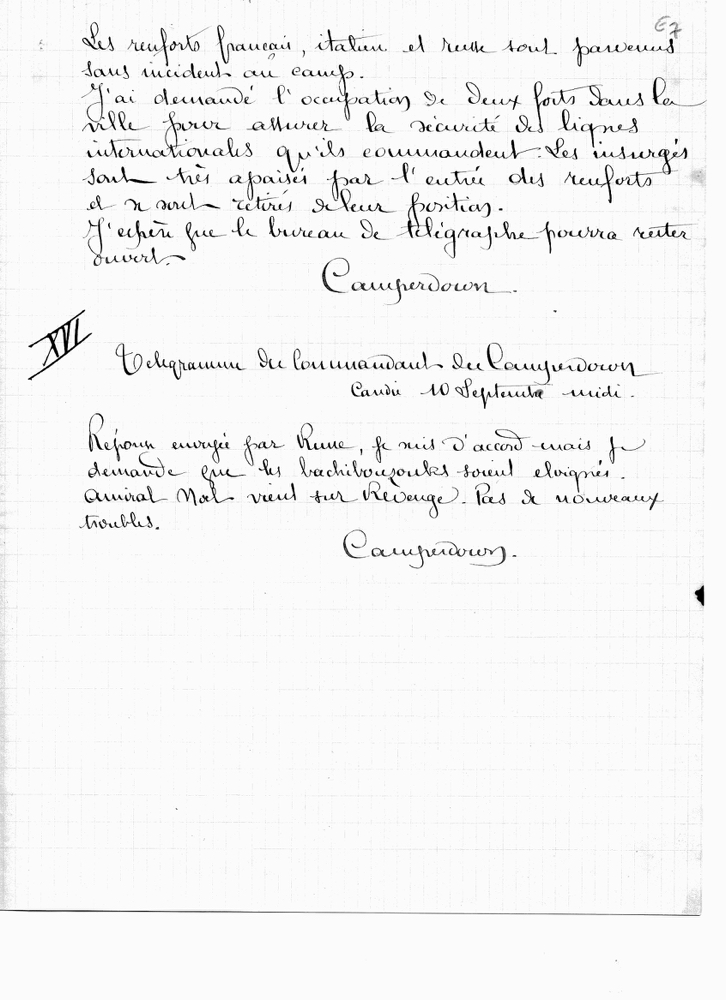 67
Les renforts français, italien et russe sont parvenus
sans incident au camp.
J'ai demandé l'occupation de deux forts dans la
ville pour assurer la sécurité des lignes
internationales qu'ils commandent. Les insurgés
sont très apaisés par l'entrée des renforts
et se sont retirés de leur position.
J'espère que le bureau de télégraphe pourra rester
ouvert.
Camperdown.
XVI
Télégramme du Commandant du Camperdown
Candie 10 Septembre midi.
Réponse envoyée par                , je suis d'accord mais je
demande que les bachibouzouks soient eloignés.
Amiral Noël vient sur Revenge. Pas de nouveaux
troubles.
Camperdown.